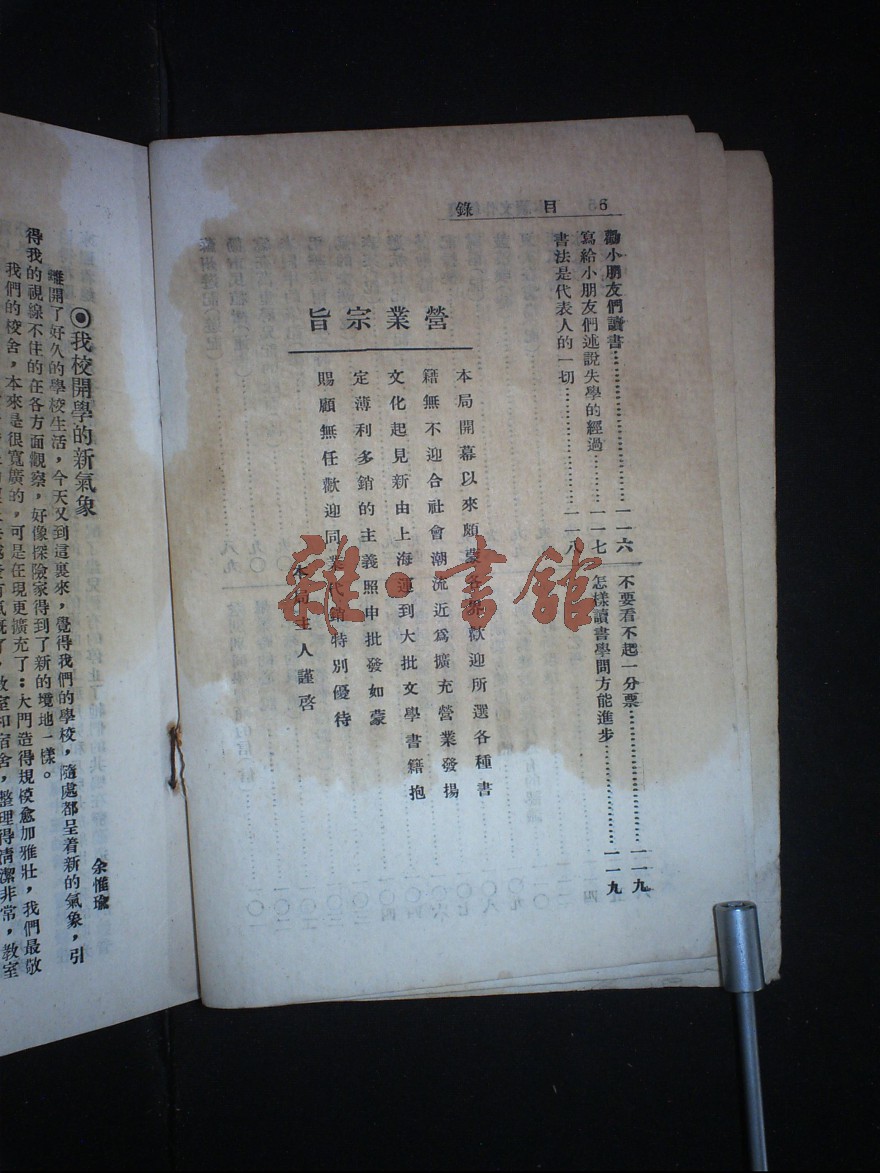 目錄
6
勸小朋友們讀書……一一六
寫給小朋友們述說失學的經過……一一七
書法是代表人的一切……一一八
不要看不起一分票……一一九
怎樣讀書學問方能進步……一一九
營業宗旨
本局開幕以來頗蒙各界歡迎所選各種書
籍無不迎合社會潮流近為擴充營業發揚
文化起見新由上海運到大批文學書籍抱
定薄利多銷的主義照申批發如蒙
賜顧無任歡迎同業代銷特別優待
本局主人謹啓
雜·書館
◉我校開學的新氣象
余惟瑜
離開了好久的學校生活，今天又到這裏來，覺得我們的學校，隨處都呈着新的氣象，引
得我的視線不住的在各方面觀察，好像探險家得到了新的境地一樣。
我們的校舍，本來是很寬廣的，可是在現更擴充了：大門造得規模愈加雅壯，我們最敬
教室和宿舍，整理得清潔非常，教室